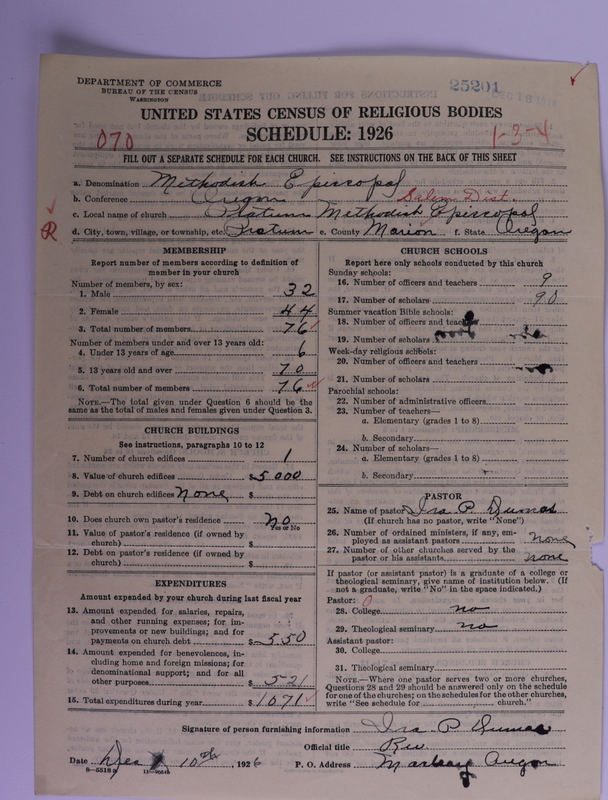 DEPARTMENT OF COMMERCE
BUREAU OF THE CENSUS
WASHINGTON
25201
UNITED STATES CENSUS OF RELIGIOUS BODIES
SCHEDULE: 1926
070
1-3-4
FILL OUT A SEPARATE SCHEDULE FOR EACH CHURCH. SEE INSTRUCTIONS ON THE BACK OF THIS SHEET
a. Denomination Methodish Episcopal
b. Conference Oregon Salem Dist.
c. Local name of church Pratum Methodish Episcopal
d. City, town, village, or township, etc. Pratum e. County Marion f. State Oregon
R
MEMBERSHIP
Report number of members according to definition of
member in your church
Number of members, by sex:
1. Male 32
2. Female 44
3. Total number of members 76
Number of members under and over 13 years old:
4. Under 13 years of age 6
5. 13 years old and over 70
6. Total number of members 76
NOTE.—The total given under Question 6 should be the
same as the total of males and females given under Question 3.
CHURCH BUILDINGS
See instructions, paragraphs 10 to 12
7. Number of church edifices 1
8. Value of church edifices $5000
9. Debt on church edifices none $
10. Does church own pastor's residence no
Yes or No
11. Value of pastor's residence (if owned by
church) $
12. Debt on pastor's residence (if owned by
church) $
EXPENDITURES
Amount expended by your church during last fiscal year
13. Amount expended for salaries, repairs,
and other running expenses; for im-
provements or new buildings; and for
payments on church debt $550
14. Amount expended for benevolences, in-
cluding home and foreign missions; for
denominational support; and for all
other purposes $521
15. Total expenditures during year $1071
CHURCH SCHOOLS
Report here only schools conducted by this church
Sunday schools:
16. Number of officers and teachers 9
17. Number of scholars 90
Summer vacation Bible schools:
18. Number of officers and teachers
19. Number of scholars
Week-day religious schools:
20. Number of officers and teachers
21. Number of scholars
Parochial schools:
22. Number of administrative officers
23. Number of teachers—
a. Elementary (grades 1 to 8)
b. Secondary
24. Number of scholars—
a. Elementary (grades 1 to 8)
b. Secondary
PASTOR
25. Name of pastor Ira P. Dumas
(If church has no pastor, write "None")
26. Number of ordained ministers, if any, em-
ployed as assistant pastors none
27. Number of other churches served by the
pastor or his assistants none
If pastor (or assistant pastor) is a graduate of a college or
theological seminary, give name of institution below. (If
not a graduate, write "No" in the space indicated.)
Pastor: 0
28. College no
29. Theological seminary no
Assistant pastor:
30. College
31. Theological seminary
NOTE.—Where one pastor serves two or more churches,
Questions 28 and 29 should be answered only on the schedule
for one of the churches; on the schedules for the other churches,
write "See schedule for church."
Signature of person furnishing information Ira P Dumas
Official title Rev
Date Dec 10th, 1926 P. O. Address
8-5518a